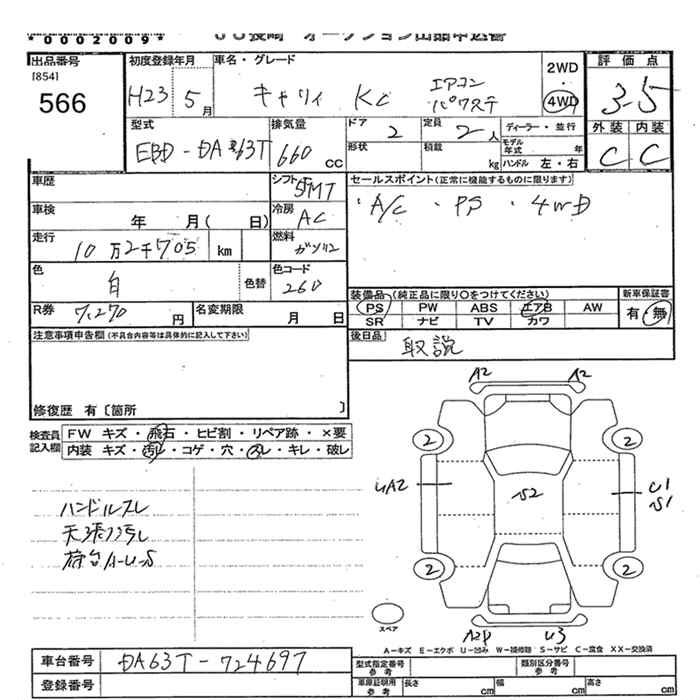 *0002009*
JU長崎 オークション出品申込書
出品番号 [854] 566
初度登録年月 H23 5月
車名・グレード キャリィ KC エアコン パワステ
2WD 4WD
評価点 3.5
外装 内装
C C
型式 EBD-DA63T
排気量 660 cc
ドア 2
定員 2人
ディーラー・並行
形状
積載 kg
モデル年式 年
ハンドル 左・右
車歴
シフト 5FMT
セールスポイント(正常に機能するものに限ります)
・A/C ・PS ・4WD
車検 年 月( 日)
冷房 AC
走行 10万2千705 km
燃料 ガソリン
色 白
色替
色コード 26U
装備品(純正品に限り〇をつけてください)
新車保証書
PS PW ABS エアB AW
有・無
SR ナビ TV カワ
R券 7,270円
名変期限 月 日
後日品 取説
注意事項申告欄(不具合内容等は具体的に記入して下さい)
修復歴 有〔箇所 〕
検査員記入欄
FW キズ・飛石・ヒビ割・リペア跡・×要
内装 キズ・汚レ・コゲ・穴・スレ・キレ・破レ
ハンドルスレ
天張汚レ
荷台A-U-S
A2 A2
2 2
UA2 S2 U1 S1
2 2
スペア
A2P U3
A-キズ E-エクボ U-凹み W-補修跡 S-サビ C-腐食 XX-交換済
車台番号 DA63T-724697
型式指定番号 参考
類別区分番号 参考
登録番号
車庫証明用 参考 長さ cm 幅 cm 高さ cm